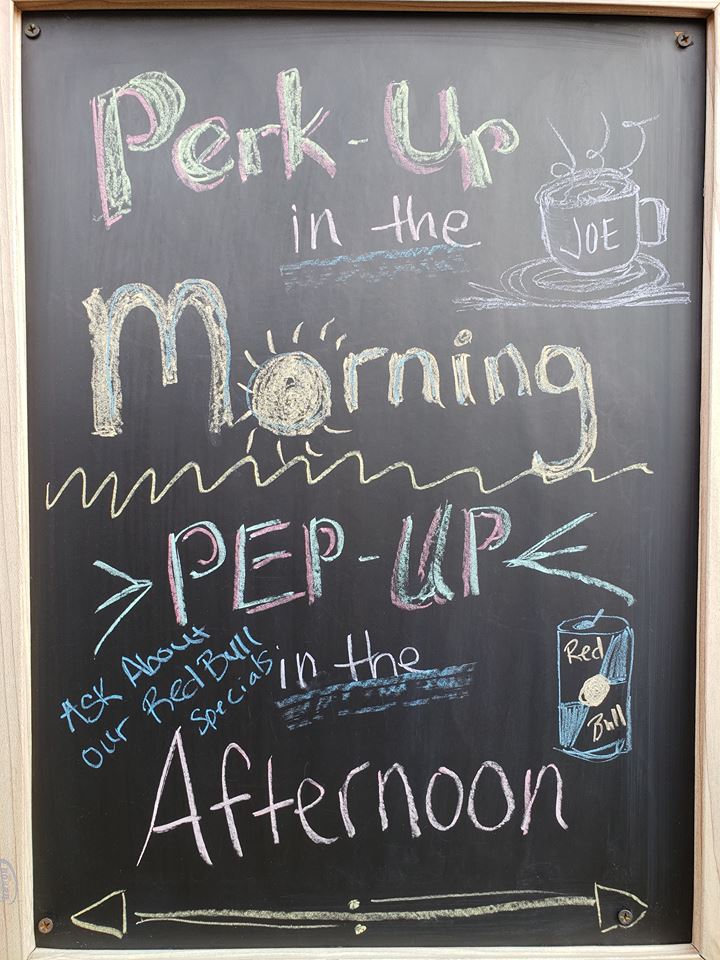 Perk-Up
in the
JOE
Morning
PEP-UP
Ask About
our Red Bull
Specials
in the
Red
Bull
Afternoon